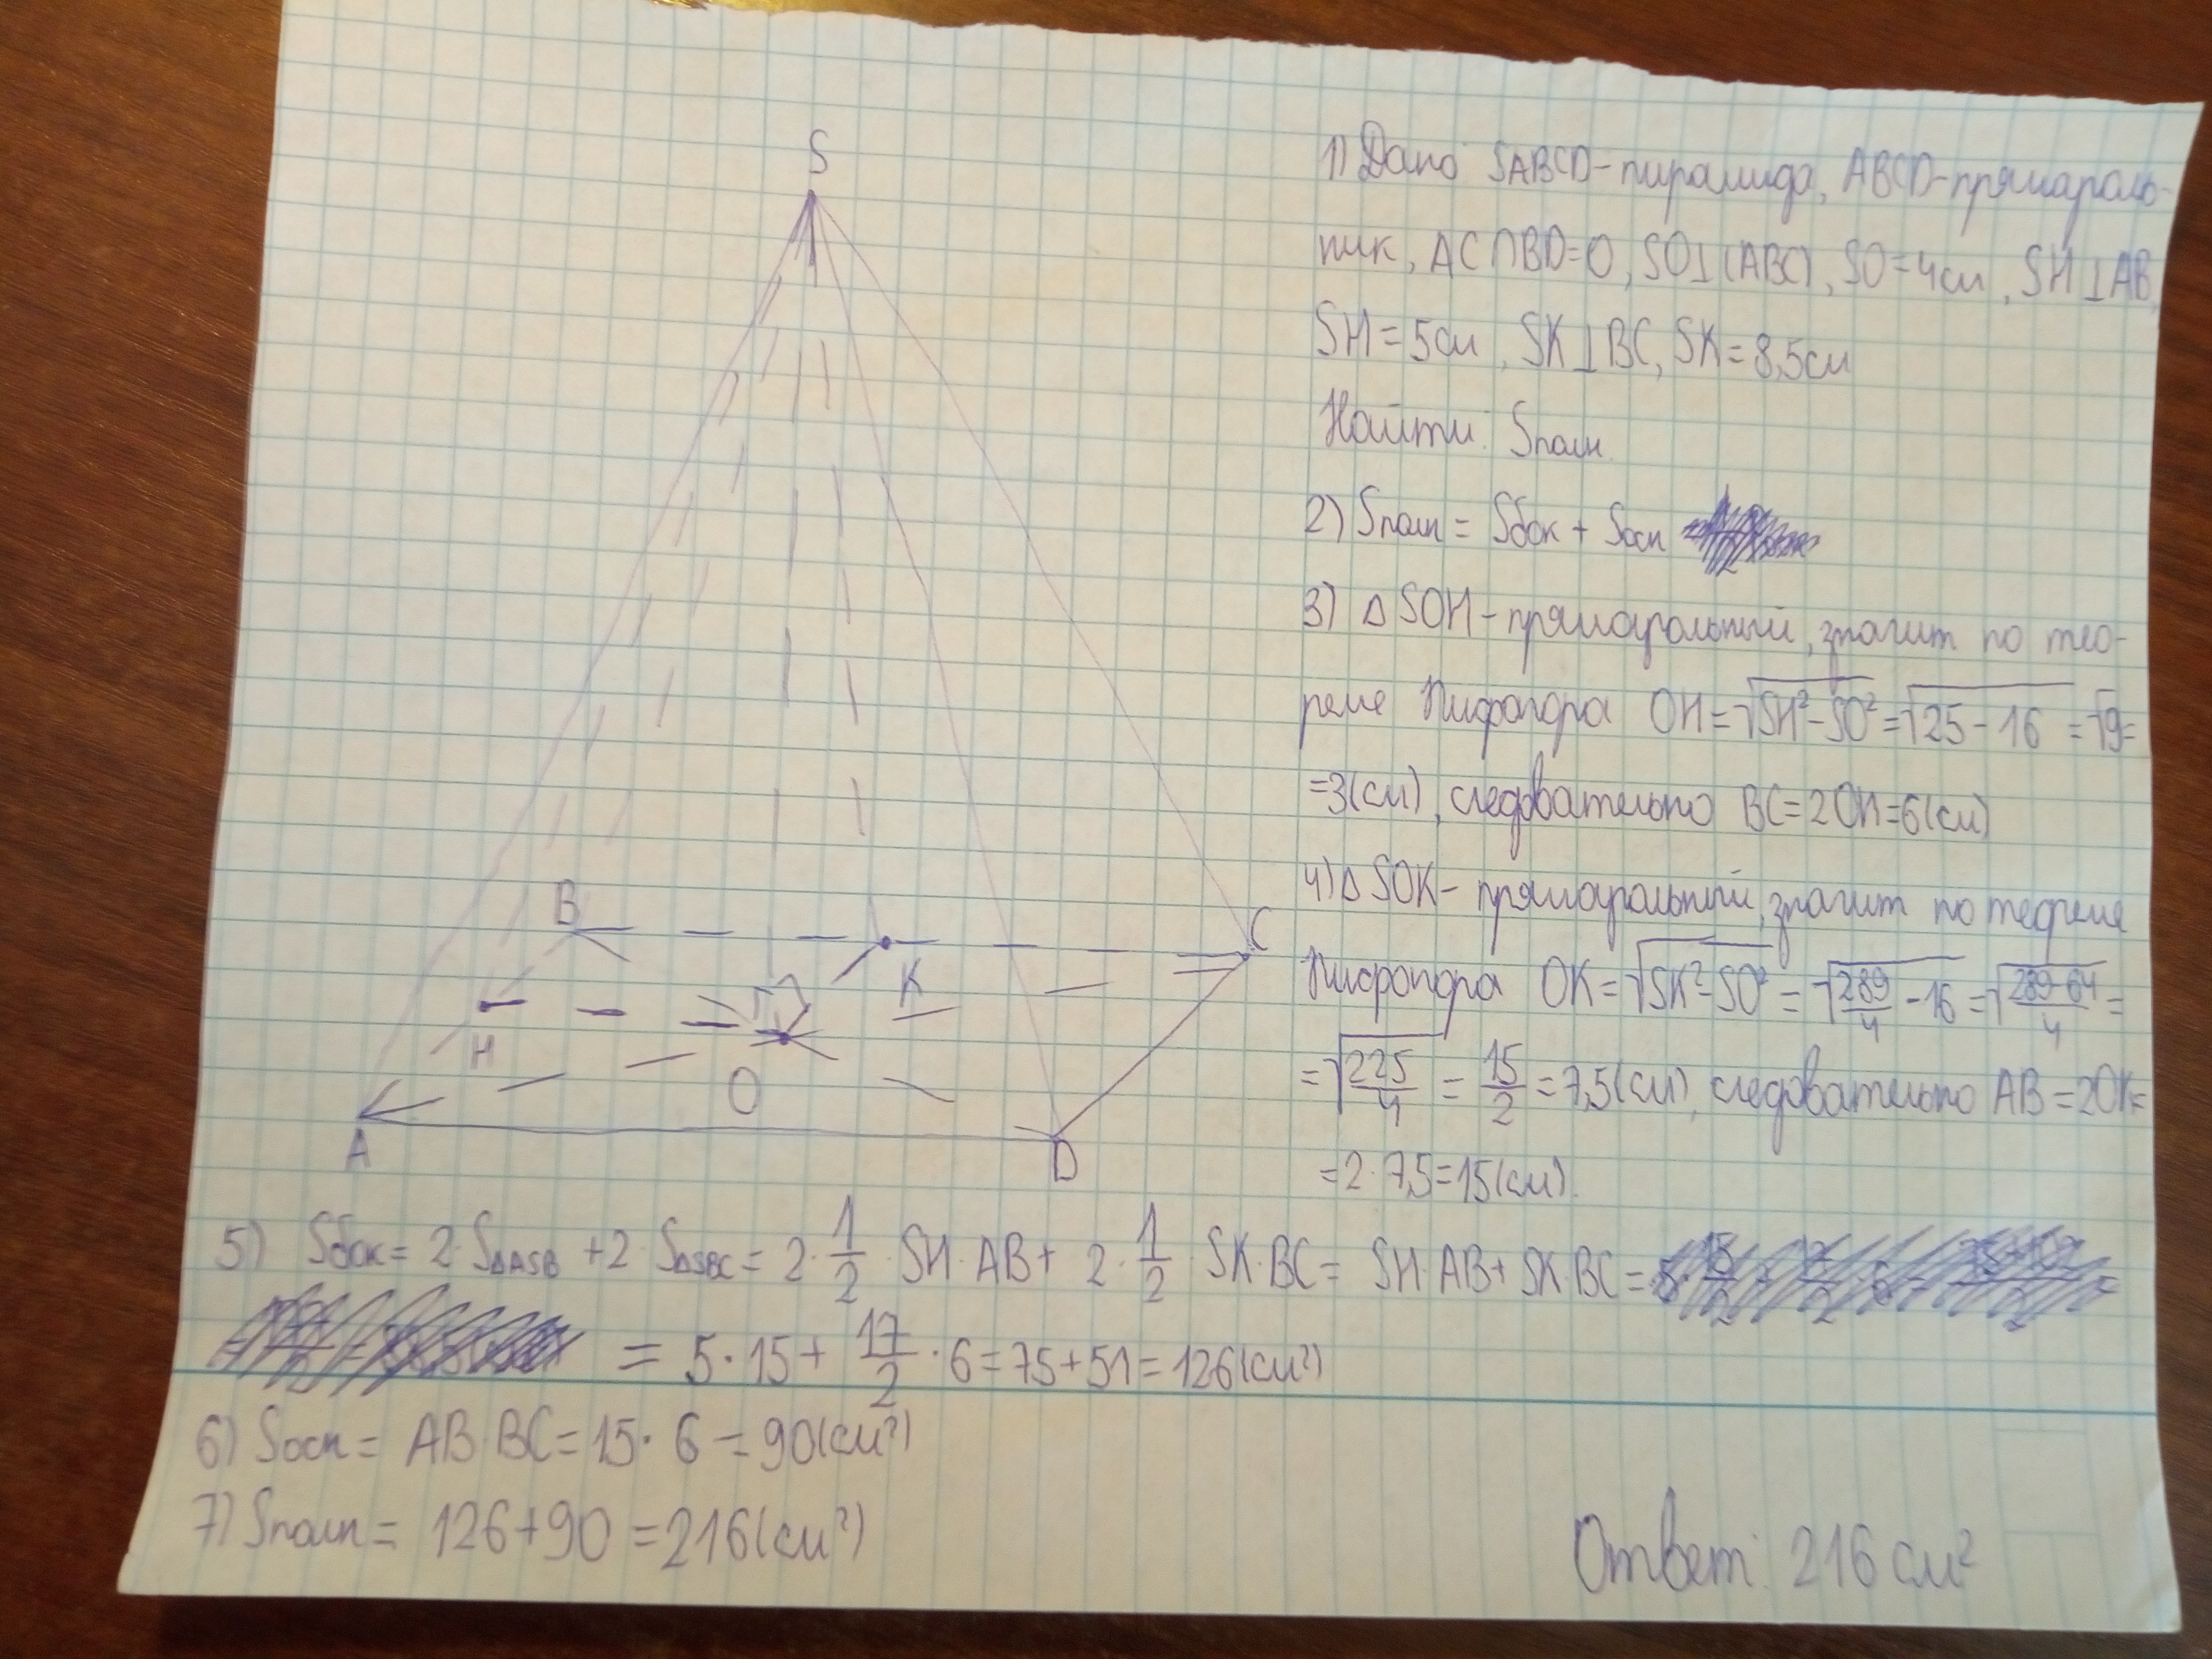 S
B
C
K
H
O
A
D
1) Дано SABCD-пирамида, ABCD-прямоуголь-
ник, AC∩BD=O, SO⊥(ABC), SO=4см, SH⊥AB,
SH=5см, SK⊥BC, SK=8,5см
Найти: Sполн.
2) Sполн = Sбок + Sосн
3) △SOH-прямоугольный, значит по тео-
реме Пифагора OH=√SH²-SO²=√25-16=√9=
=3(см), следовательно BC=2OH=6(см)
4) △SOK-прямоугольный, значит по теореме
Пифагора OK=√SK²-SO²=√289/4-16=√289-64/4=
=√225/4=15/2=7,5(см), следовательно AB=2OK=
=2·7,5=15(см).
5) Sбок=2·S△ASB+2·S△SBC=2·1/2·SH·AB+2·1/2·SK·BC=SH·AB+SK·BC=
=5·15+17/2·6=75+51=126(см²)
6) Sосн=AB·BC=15·6=90(см²)
7) Sполн=126+90=216(см²)
Ответ: 216 см²